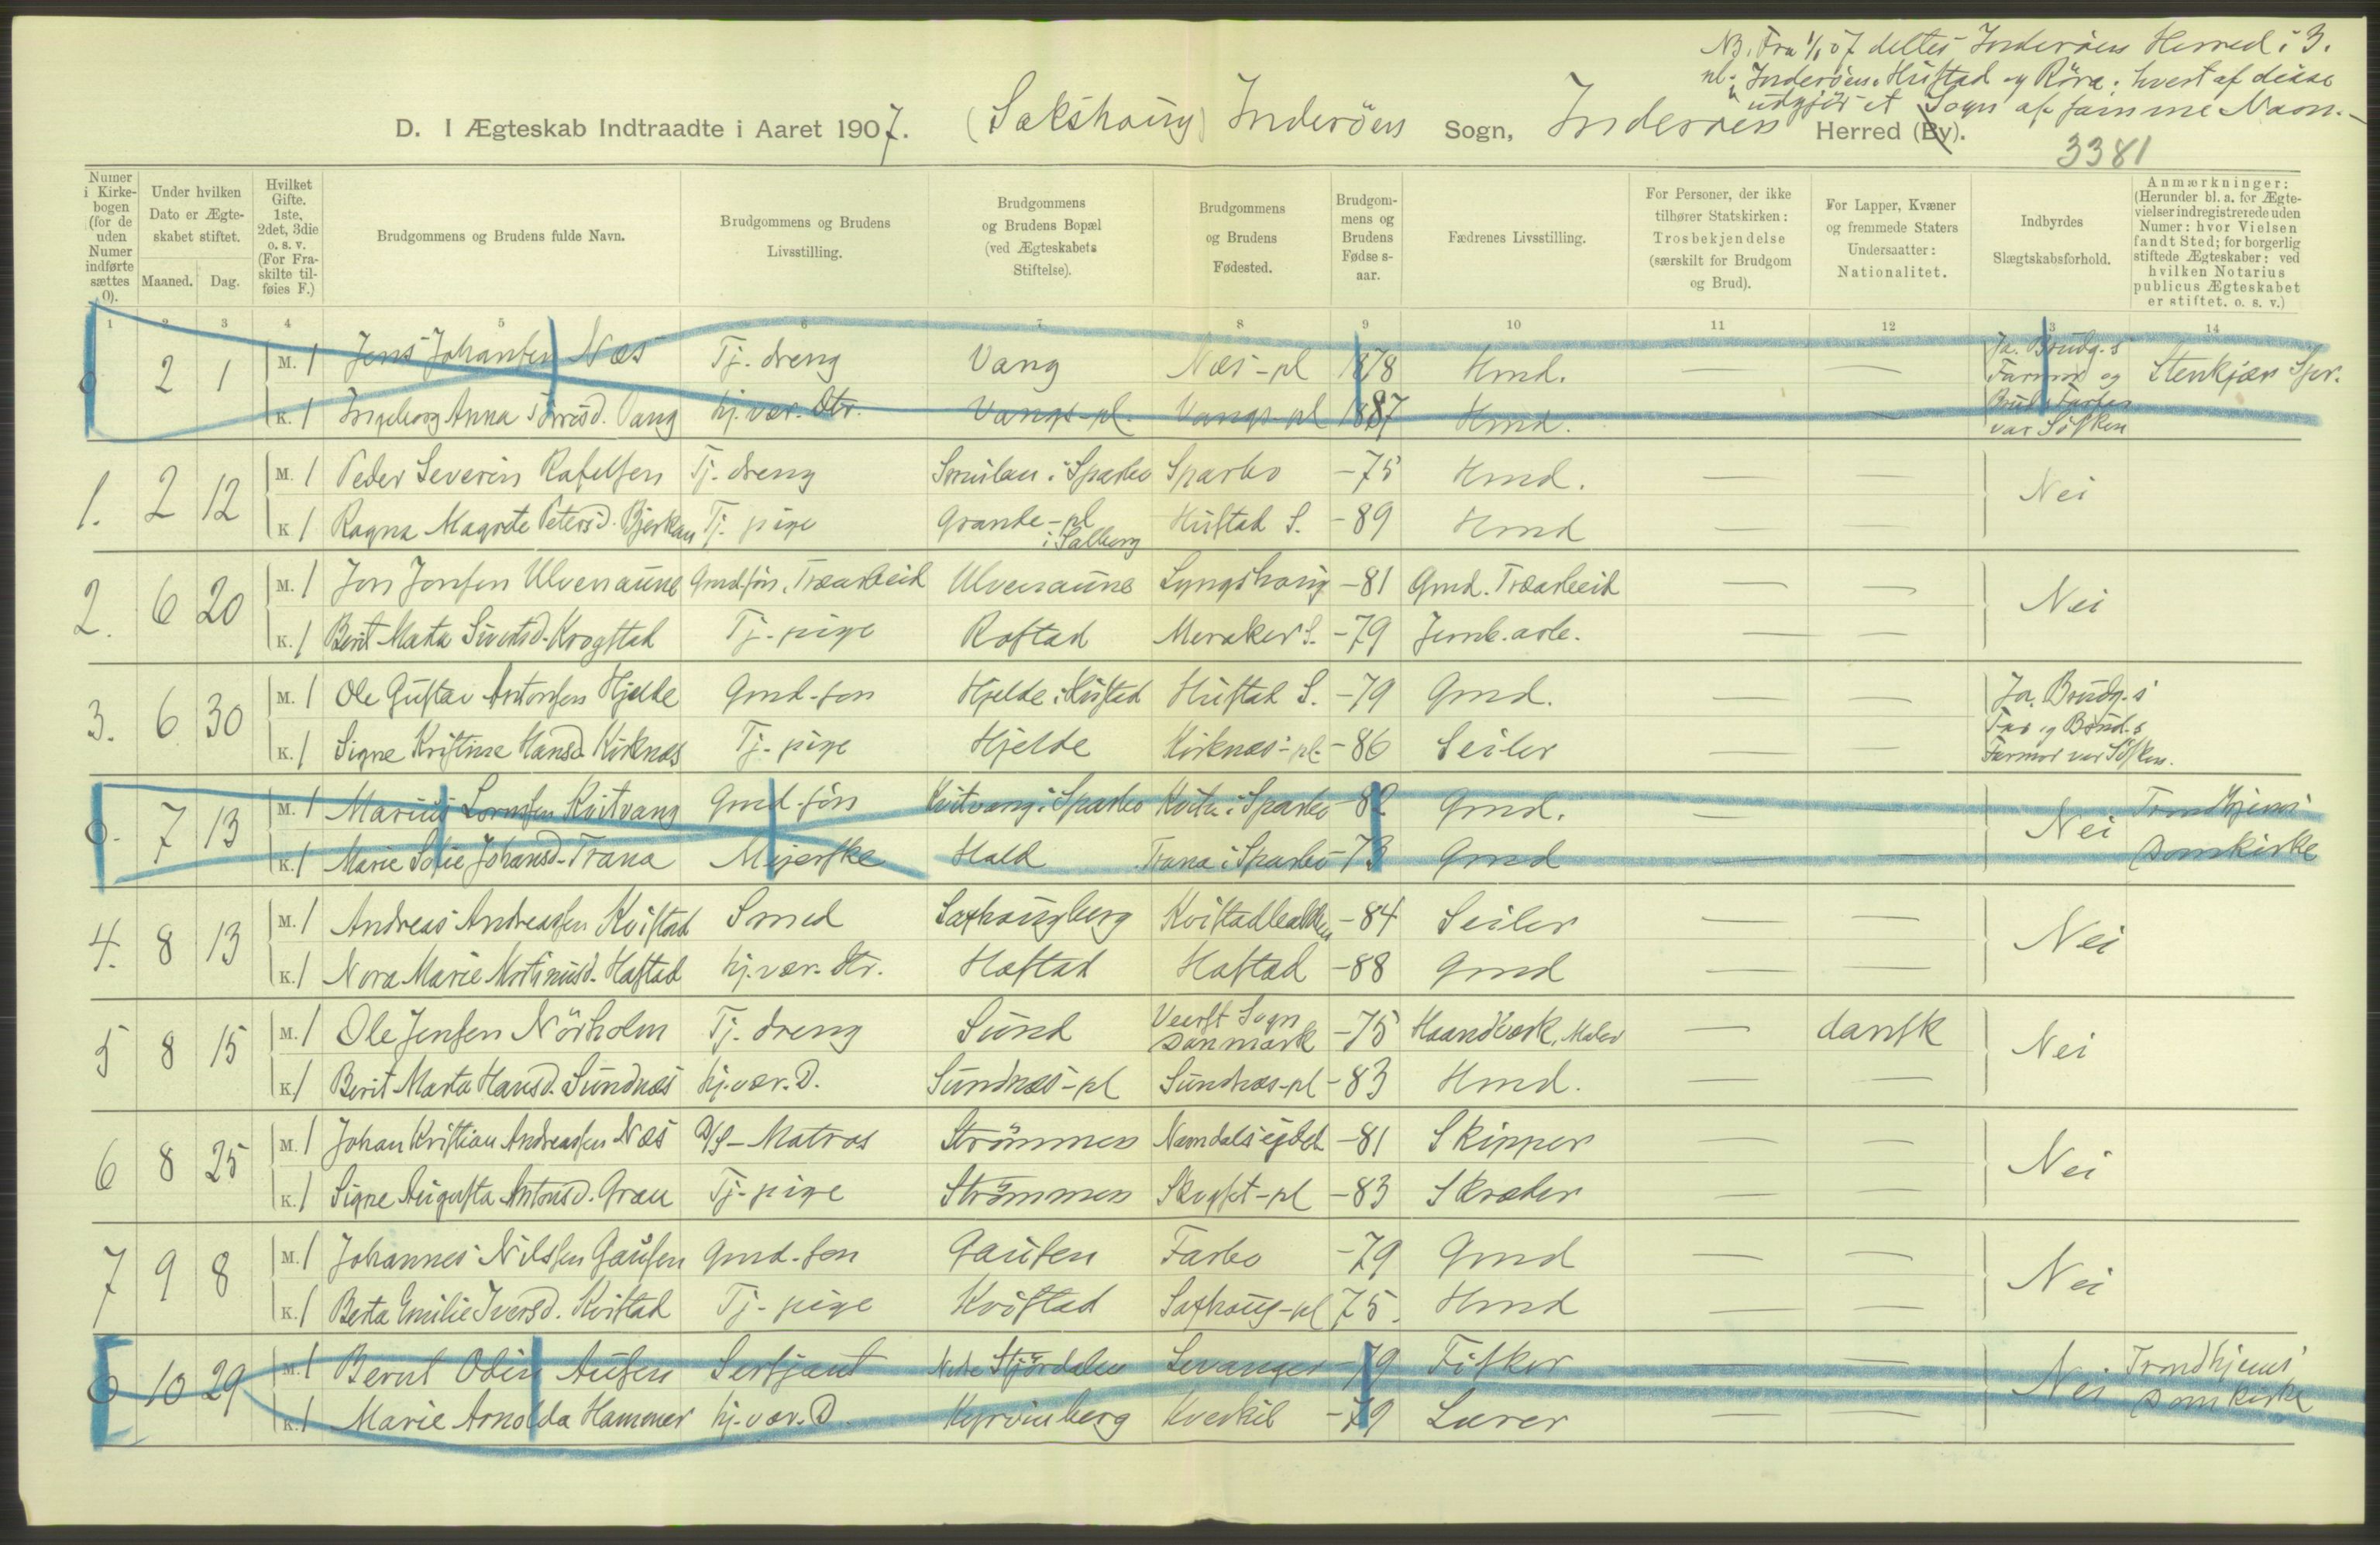 NB. Fra 1/1 07 deltes Inderöens Herred i 3.
nl. Inderöen, Hustad og Röra; hvert af disse
udgjör et Sogn af samme Navn.
D. I Ægteskab Indtraadte i Aaret 1907. (Sakshaug) Inderöen Sogn, Inderöen Herred (By).
3381
Numer i Kirkebogen (for de uden Numer indførte sættes 0).
Under hvilken Dato er Ægteskabet stiftet.
Maaned. Dag.
Hvilket Gifte. 1ste, 2det, 3die o. s. v. (For Fraskilte tilføies F.)
Brudgommens og Brudens fulde Navn.
Brudgommens og Brudens Livsstilling.
Brudgommens og Brudens Bopæl (ved Ægteskabets Stiftelse).
Brudgommens og Brudens Fødested.
Brudgommens og Brudens Fødselsaar.
Fædrenes Livsstilling.
For Personer, der ikke tilhører Statskirken: Trosbekjendelse (særskilt for Brudgom og Brud).
For Lapper, Kvæner og fremmede Staters Undersaatter: Nationalitet.
Indbyrdes Slægtskabsforhold.
Anmærkninger: (Herunder bl. a. for Ægtevielser indregistrerede uden Numer: hvor Vielsen fandt Sted; for borgerlig stiftede Ægteskaber: ved hvilken Notarius publicus Ægteskabet er stiftet. o. s. v.)
1 2 3 4 5 6 7 8 9 10 11 12 13 14
0 2 1 M. 1 Jens Johansen Næs Tj. dreng Vang Næs-pl 1878 Hmd. — — Ja. Brudg.s Farmor og Stenkjær Spr.
K. 1 Ingeborg Anna Vang hj. vær. Dtr. Vangs-pl. Vangs-pl 1887 Hmd. — — Bruds Farfar var Søsken
1. 2 12 M. 1 Peder Severin Rafelsen Tj. dreng i Sparbo Sparbo -75 Hmd. — — Nei
K 1 Ragna Magrete Petersd. Bjerkan Tj. pige Grande-pl i Salberg Hustad S. -89 Hmd — —
2. 6 20 M. 1 Jon Jonsen Ulvenaune Gmdsön, Træarbeid Ulvenaune Lyngshaug -81 Gmd. Træarbeid — — Nei
K. 1 Berit Marta Sivertsd. Krogstad Tj. pige Rostad Meraker S. -79 Jernb. arb. — —
3. 6 30 M. 1 Ole Gustav Antonsen Hjelde Gmd-søn Hjelde i Hustad Hustad S. -79 Gmd. — — Ja. Brudg.s
K. 1 Signe Kristine Hansd. Kirknæs Tj. pige Hjelde Kirknæs-pl. -86 Seiler — — Far og Brud.s Farmor var Søsken.
0. 7 13 M. 1 Marius Lornsen Kvitvang Gmd-søn Kvitvang i Sparbo i Sparbo -82 Gmd. — — Nei Trondhjems
K. 1 Marie Sofie Johansd. Trana Mejerske Hald Trana i Sparbo -73 Gmd — — Domkirke
4. 8 13 M. 1 Andreas Andreassen Kvistad Smed Saxhaugberg Kvistadbakken -84 Seiler — — Nei
K. 1 Nora Marie Martinusd. Hastad hj. vær. Dtr. Hastad Hastad -88 Gmd — —
5 8 15 M. 1 Ole Jensen Nörholm Tj. dreng Sund Veerst Sogn Danmark -75 Haandværk, Maler — dansk Nei
K 1 Berit Marta Hansd. Sundnæs hj. vær. D. Sundnæs-pl Sundnæs-pl -83 Hmd. — —
6 8 25 M. 1 Johan Kristian Andreassen Næs D/S-Matros Strömmen Namdalsejdet -81 Skipper — — Nei
K. 1 Signe Augusta Antonsd. Grau Tj. pige Strömmen -pl -83 Skræder — —
7 9 8 M. 1 Johannes Nilssen Gausen Gmd-søn Gausen Fasbo -79 Gmd — — Nei
K. 1 Berta Emilie Iversd. Kvistad Tj. pige Kvistad Saxhaug-pl 75. Hmd — —
0 10 29 M. 1 Bernt Odin Ausen Sersjant Nedre Stjördalen Levanger -79 Fisker — — Nei Trondhjems
K. 1 Marie Arnolda Hammer hj. vær. D. -79 Lærer — — Domkirke